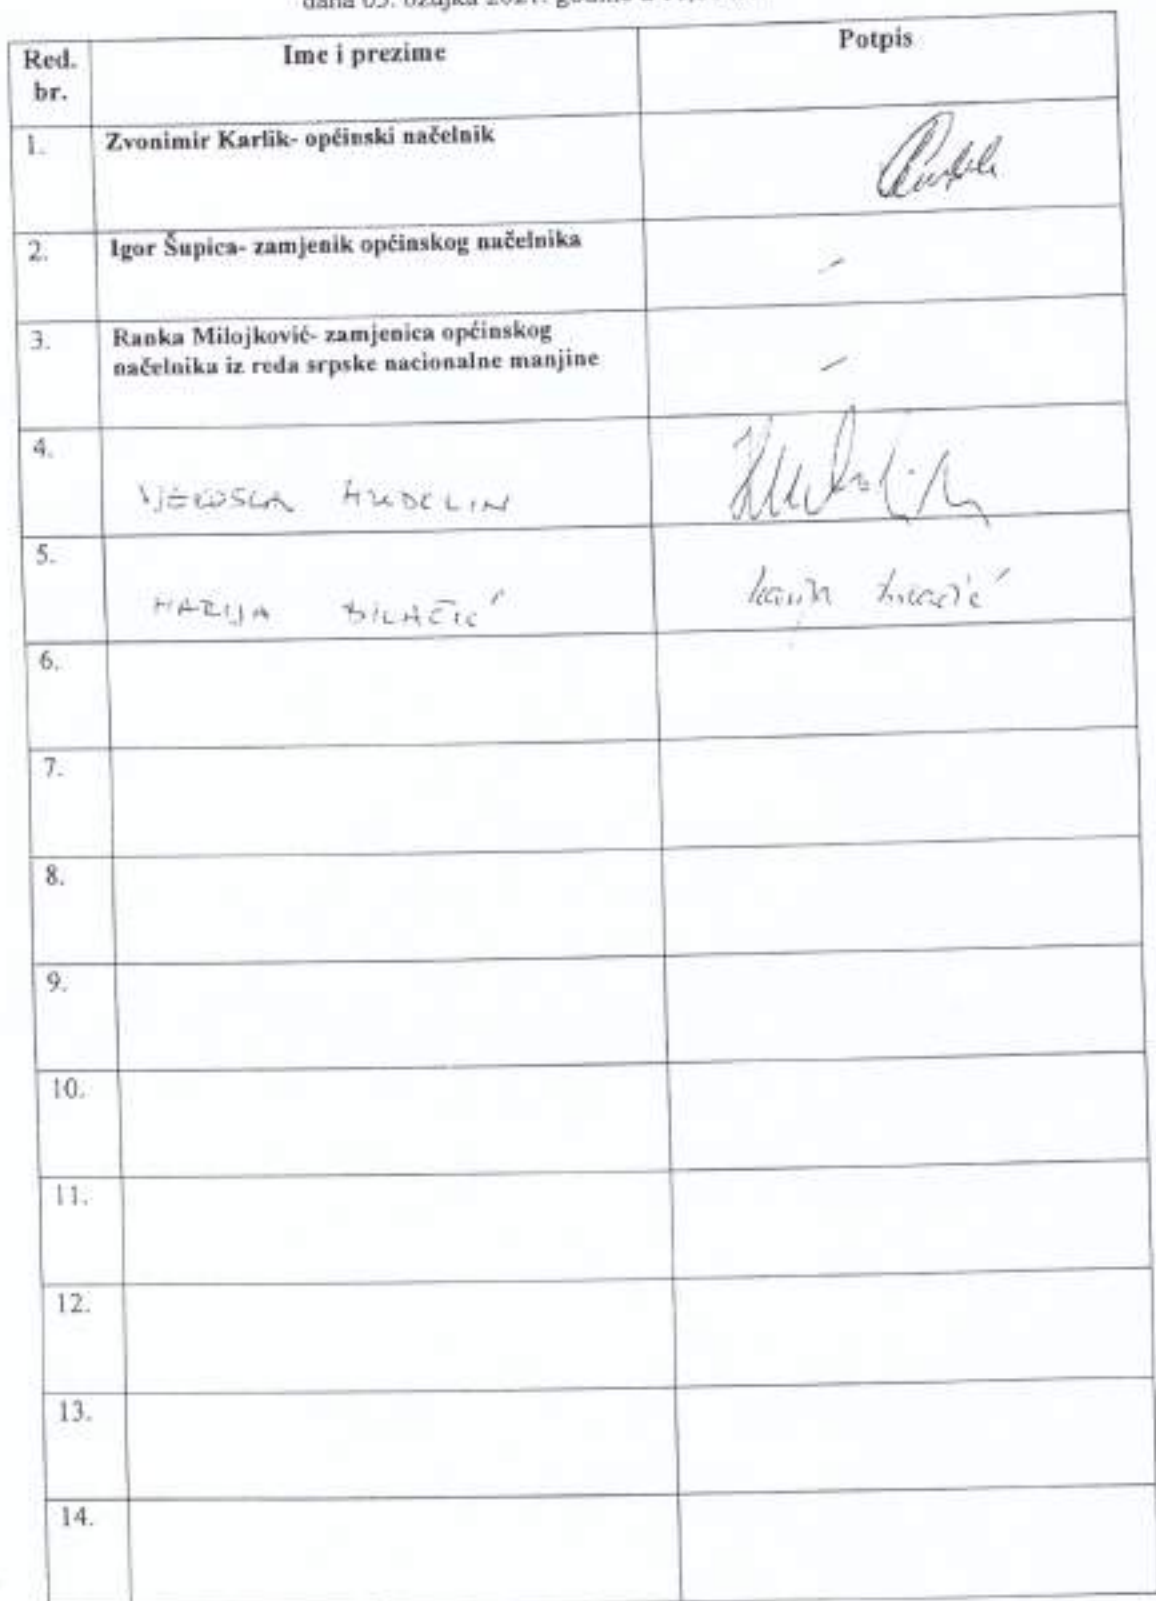 dana 05. ožujka 2021. godine u
Red. br.
Ime i prezime
Potpis
1.
Zvonimir Karlik- općinski načelnik
2.
Igor Šupica- zamjenik općinskog načelnika
-
3.
Ranka Milojković- zamjenica općinskog
načelnika iz reda srpske nacionalne manjine
-
4.
HUDELIN
5.
MARIJA
6.
7.
8.
9.
10.
11.
12.
13.
14.